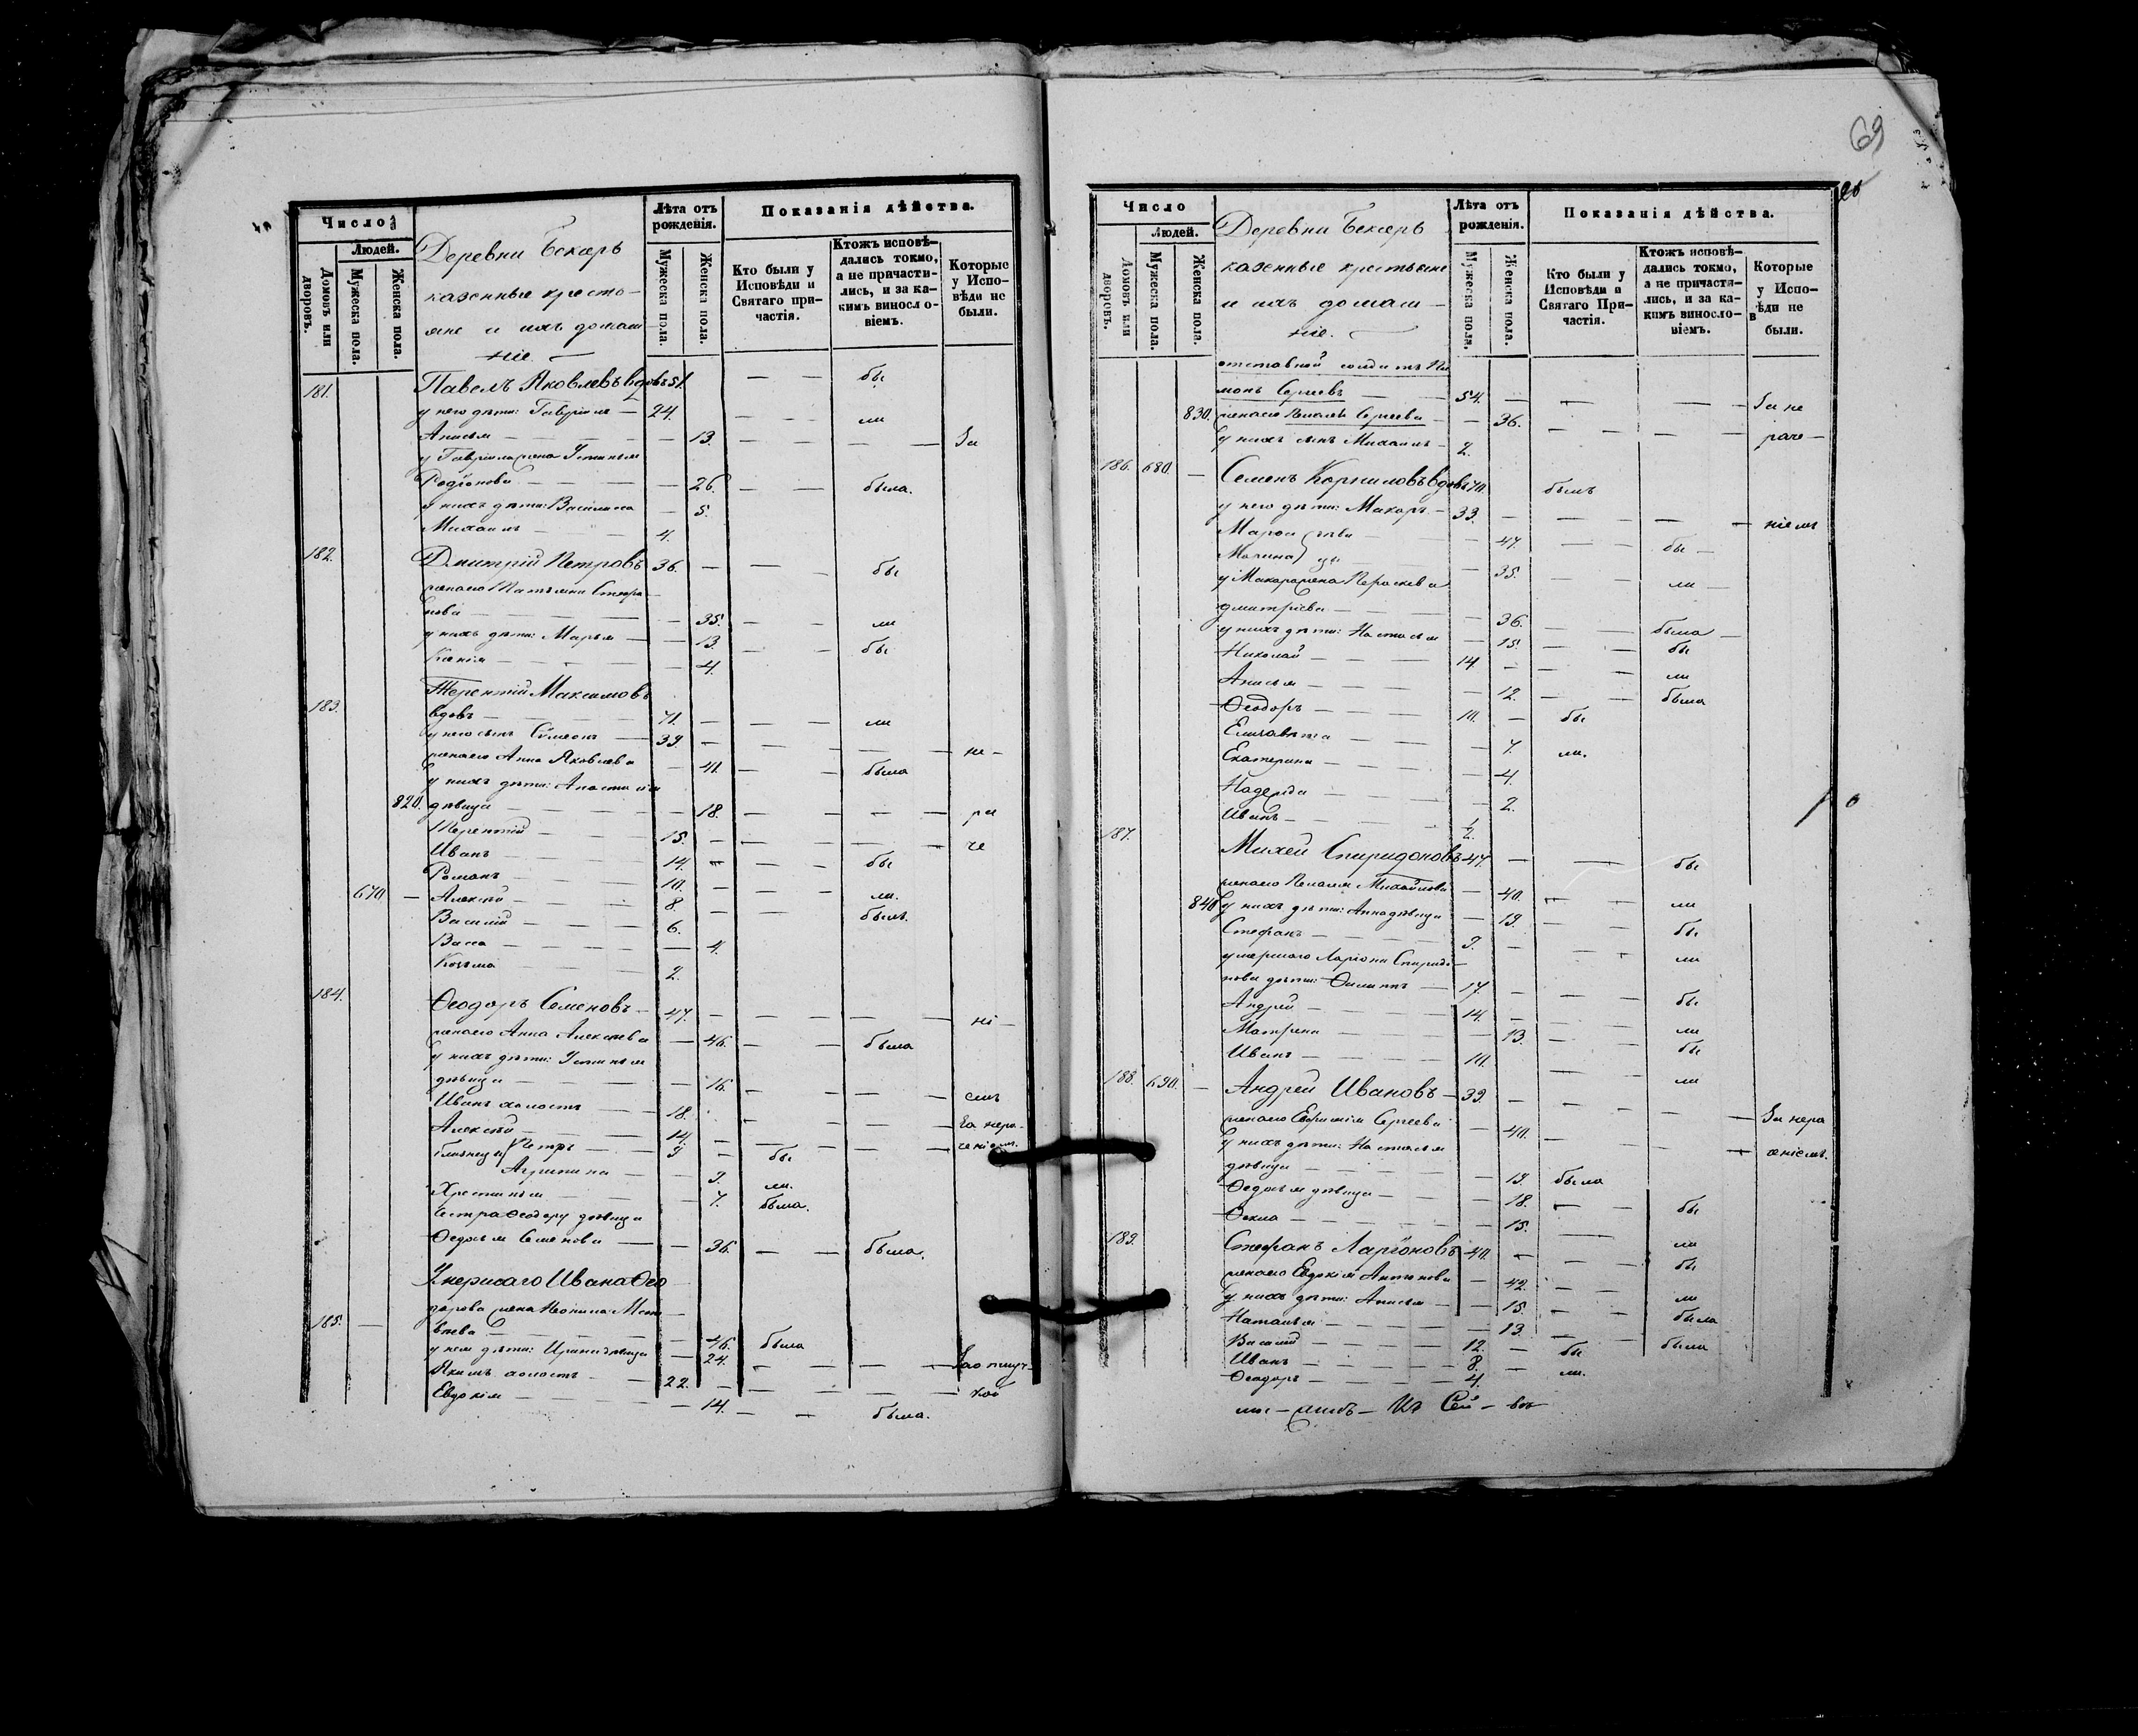 Число
Людей.
Домовъ или дворовъ.
Мужеска пола.
Женска пола.
Деревни Бекаръ
казенные кресть-
яне и ихъ домаш-
ніе.
Лѣта отъ рожденія.
Мужеска пола.
Женска пола.
Показанія дѣйства.
Кто были у Исповѣди и Святаго причастія.
Ктожъ исповѣдались токмо, а не причастились, и за какимъ винословіемъ.
Которые у Исповѣди не были.
181. Павелъ Яковлевъ вдовъ 51. — — бы
у него дѣти: Гавріилъ — 24. — — ли
Анисья — — 13. — — — За
у Гавріила жена Устинья
Родіонова — — 26. — — была.
у нихъ дѣти: Василиса — 5.
Михаилъ — 4.
182. Дмитрій Петровъ 36. — — бы
жена его Татьяна Стефа-
нова — — 35. — — ли
у нихъ дѣти: Марья — — 13. — — бы
Ксенія — — 4.
183. Терентій Максимовъ
вдовъ — 71. — — — ли
у него сынъ Симеонъ — 39. — — — — не-
жена его Анна Яковлева — 41. — — была
у нихъ дѣти: Анастасія
820. дѣвица — — 18. — — — ра
Терентій — 15. — — — че
Иванъ — 14. — — — бы
Романъ — 10. — — — ли.
670 — Алексѣй — 8. — — былъ.
Василій — 6.
Васса — — 4.
Козьма — 2.
184. Ѳеодоръ Семеновъ — 47. — — — — ні-
жена его Анна Алексѣева — 46. — — была
у нихъ дѣти: Устинья
дѣвица — — 16. — — — емъ
Иванъ холостъ — 18. — — — За нера-
Алексѣй — 14. — — — ченіемъ.
близнецы Петръ — 9. — бы
Агрипина — 9. ли.
Христинья — 7. была.
Сестра Ѳеодору дѣвица
Ѳедосья Семенова — — 36. — — была.
Умершаго Ивана Ѳео-
185. — дорова жена Неонила Мат-
вѣева — — 46. была
у нея дѣти: Ирина дѣвица — 24. — — — За отлуч-
Якимъ холостъ — 22. — — — — кою
Евдокія — — 14. — — была.
69
Число
Людей.
Домовъ или дворовъ.
Мужеска пола.
Женска пола.
Деревни Бекаръ
казенные крестьяне
и ихъ домаш-
ніе.
Лѣта отъ рожденія.
Мужеска пола.
Женска пола.
Показанія дѣйства.
Кто были у Исповѣди и Святаго Причастія.
Ктожъ исповѣдались токмо, а не причастились, и за какимъ винословіемъ.
Которые у Исповѣди не были.
отставной солдатъ
Сергеевъ — 54. — — — За не
830. жена его Сергеева — — 36. — — — раче-
у нихъ сынъ Михаилъ — 2.
186. 680. — Семенъ Корниловъ вдовъ 70. былъ
у него дѣти: Макаръ — 33. — — — — ніемъ
Марѳа — 47. — — бы —
Марина — 35. — — ли —
у Макара жена Параскева
Дмитріева — — 36. — — была —
у нихъ дѣти: Настасья — 15. — — бы
Николай — 14. — — — ли
Анисья — — 12. — — была
Ѳеодоръ — 10. — бы
Елизавета — — 7. ли.
Екатерина — — 4.
Надежда — — 2.
Иванъ — 1/2.
187. Михей Спиридоновъ 47. — — бы
жена его Михайлова — 40. — — ли
840 у нихъ дѣти: Анна дѣвица — 19. — — бы
Стефанъ — 9. — — — ли
умершаго Ларіона Спиридо-
нова дѣти: Филиппъ — 17. — — — бы
Андрей — 14. — — — ли
Матрена — — 13. — — бы
Иванъ — 10. — — ли
188. 690. — Андрей Ивановъ — 39. — — — — За нера
жена его Сергеева — 40. — — — ченіемъ.
у нихъ дѣти: Настасья
дѣвица — — 19. была
Ѳедосья дѣвица — — 18. — — бы
Ѳекла — — 15. — ли
189. Стефанъ Ларіоновъ 40. — — — бы
жена его Евдокія Антонова — 42. — — ли
у нихъ дѣти: Анисья — — 15. — — была
Наталья — — 13. — — была
Василій — 12. — бы
Иванъ — 8. — ли.
Ѳеодоръ — 4.